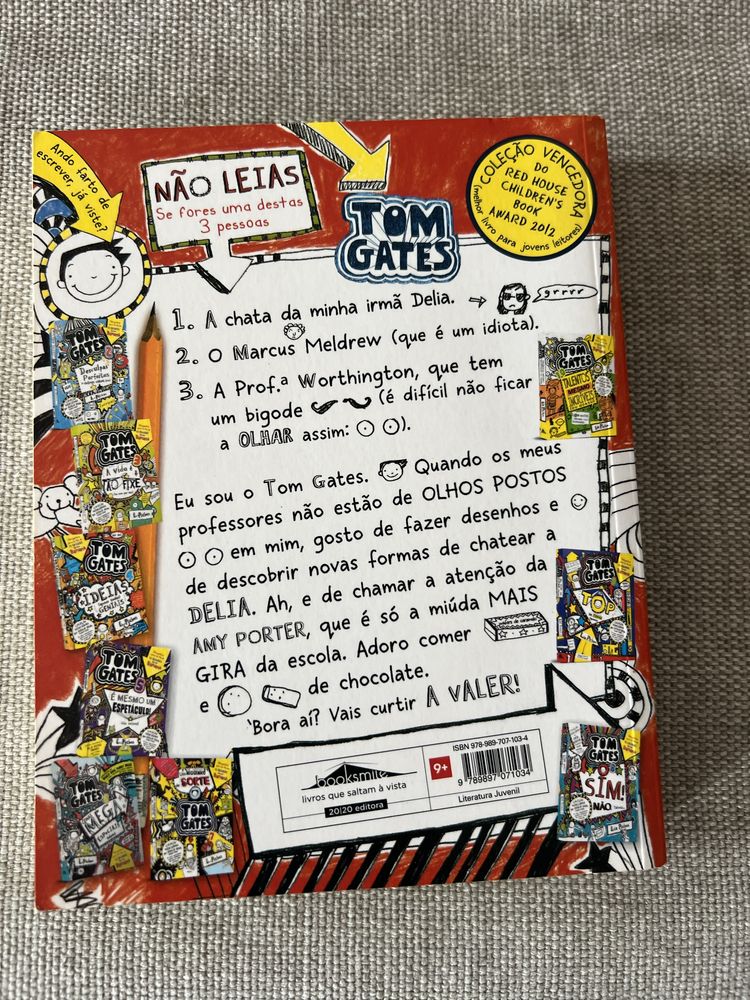 Ando farto de
escrever, já viste?
NÃO LEIAS
Se fores uma destas
3 pessoas
TOM
GATES
COLEÇÃO VENCEDORA
DO
RED HOUSE
CHILDREN'S
BOOK
AWARD 2012
(melhor livro para jovens leitores)
1. A chata da minha irmã Delia.
grrrr
2. O Marcus Meldrew (que é um idiota).
3. A Prof.ª Worthington, que tem
um bigode (é difícil não ficar
a OLHAR assim: ).
Eu sou o Tom Gates. Quando os meus
professores não estão de OLHOS POSTOS
em mim, gosto de fazer desenhos e
de descobrir novas formas de chatear a
DELIA. Ah, e de chamar a atenção da
AMY PORTER, que é só a miúda MAIS
GIRA da escola. Adoro comer
e de chocolate.
'Bora aí? Vais curtir A VALER!
TOM
GATES
Desculpas
Perfeitas
TOM
GATES
A vida é
TÃO FIXE
TOM
GATES
IDEIAS
GENIAIS
TOM
GATES
É MESMO UM
ESPETÁCULO!
TOM
GATES
MEGA
SORTE
TOM
GATES
TOM
GATES
TALENTOS
MESMO
INCRÍVEIS
TOM
GATES
TOP
TOM
GATES
SIM!
NÃO.
booksmile
livros que saltam à vista
20|20 editora
9+
ISBN 978-989-707-103-4
9 789897 071034
Literatura Juvenil